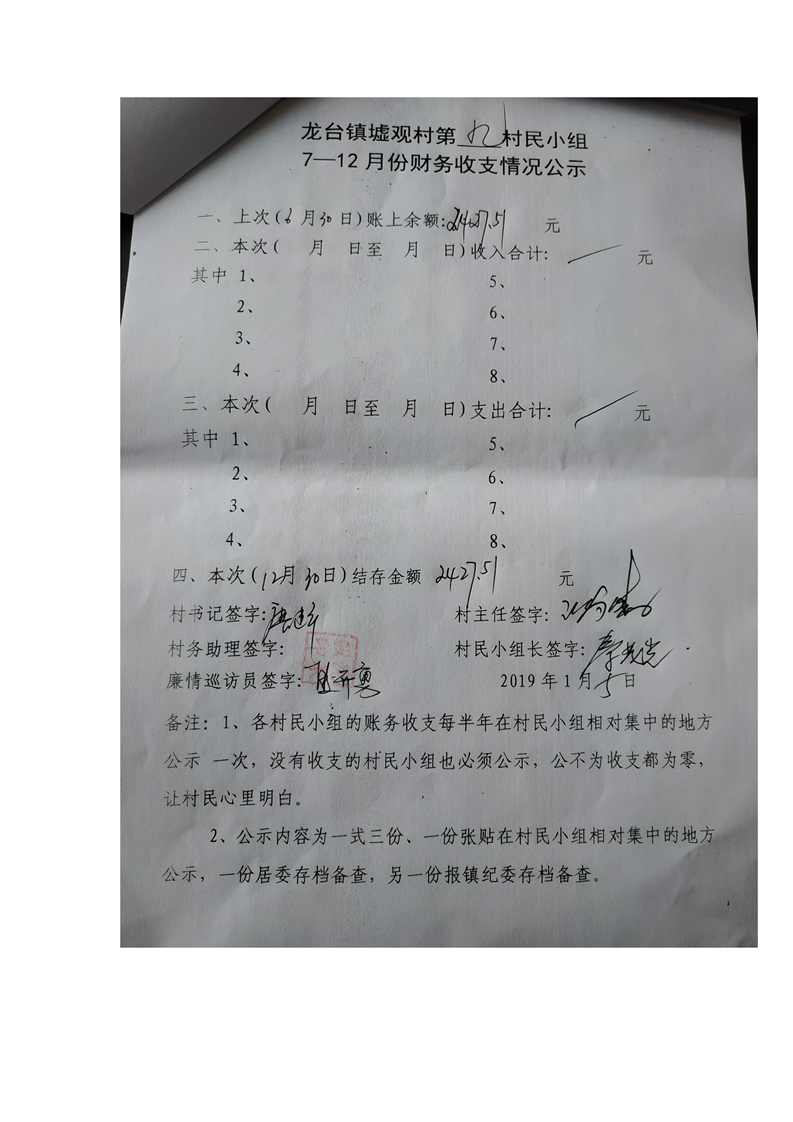 龙台镇墟观村第九村民小组
7—12月份财务收支情况公示
一、上次(6月30日)账上余额:2427.51 元
二、本次( 月 日至 月 日)收入合计: / 元
其中 1、 5、
2、 6、
3、 7、
4、 8、
三、本次( 月 日至 月 日)支出合计: / 元
其中 1、 5、
2、 6、
3、 7、
4、 8、
四、本次(12月30日)结存金额 2427.51 元
村书记签字: 村主任签字:
村务助理签字: 村民小组长签字:
廉情巡访员签字: 2019年1月5日
备注:1、各村民小组的账务收支每半年在村民小组相对集中的地方
公示 一次,没有收支的村民小组也必须公示,公不为收支都为零,
让村民心里明白。
2、公示内容为一式三份、一份张贴在村民小组相对集中的地方
公示,一份居委存档备查,另一份报镇纪委存档备查。